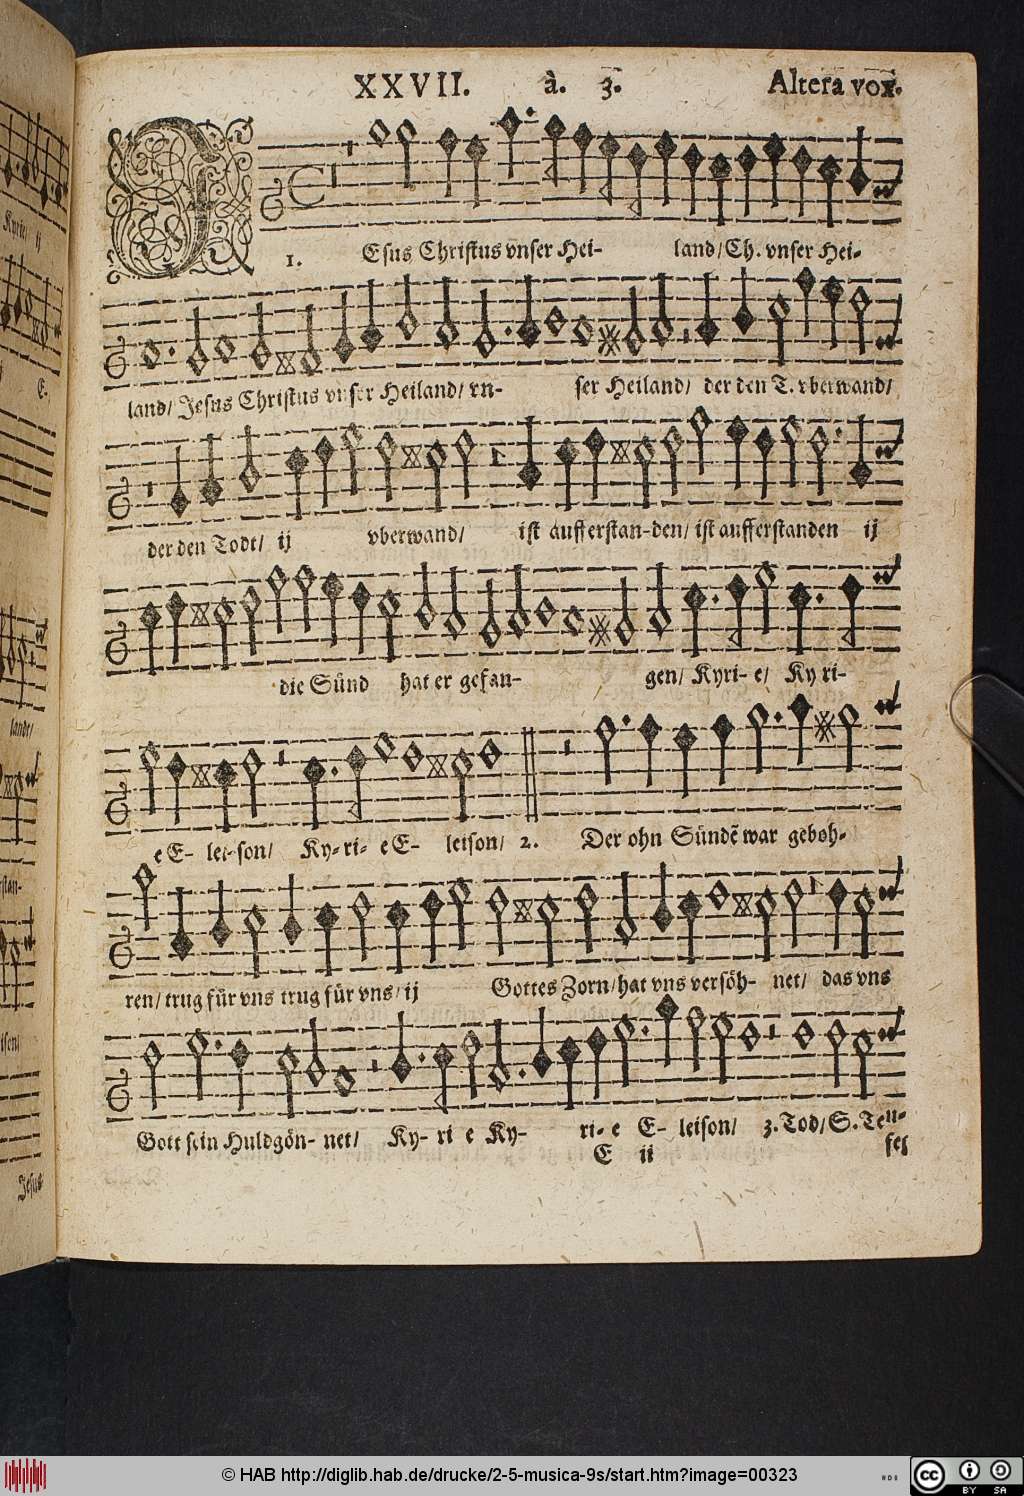 XXVII. à. 3. Altera vox.
J
1. Esus Christus vnser Hei- land/ Ch. vnser Hei-
land/ Jesus Christus vnser Heiland/ vn- ser Heiland/ der den T. vberwand/
der den Todt/ ij vberwand/ ist aufferstan-den/ ist aufferstanden ij
die Sünd hat er gefan- gen/ Kyri- e/ Ky ri-
e E- lei-son/ Ky- ri- e E- leison/ 2. Der ohn Sündē war geboh-
ren/ trug für vns trug für vns/ ij Gottes Zorn/ hat vns versöh- net/ das vns
Gott sein Huldgön- net/ Ky- ri e Ky- ri- e E- leison/ 3. Tod/ S. Teu-
E ii fel
Kyrie/ ij
E-
lande/
stan-
isen/
Jesus
© HAB http://diglib.hab.de/drucke/2-5-musica-9s/start.htm?image=00323
cc BY SA